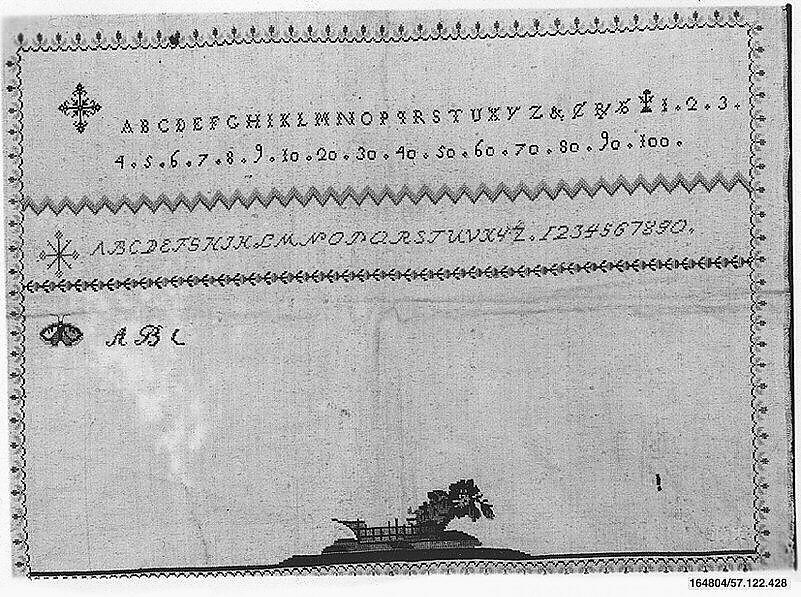 ABCDEFGHIKLMNOPQRSTUXYZ& 1.2.3.
4.5.6.7.8.9.10.20.30.40.50.60.70.80.90.100.
ABCDEFGHIKLMNOPQRSTUVXYZ.1234567890.
ABC
164804/57.122.428